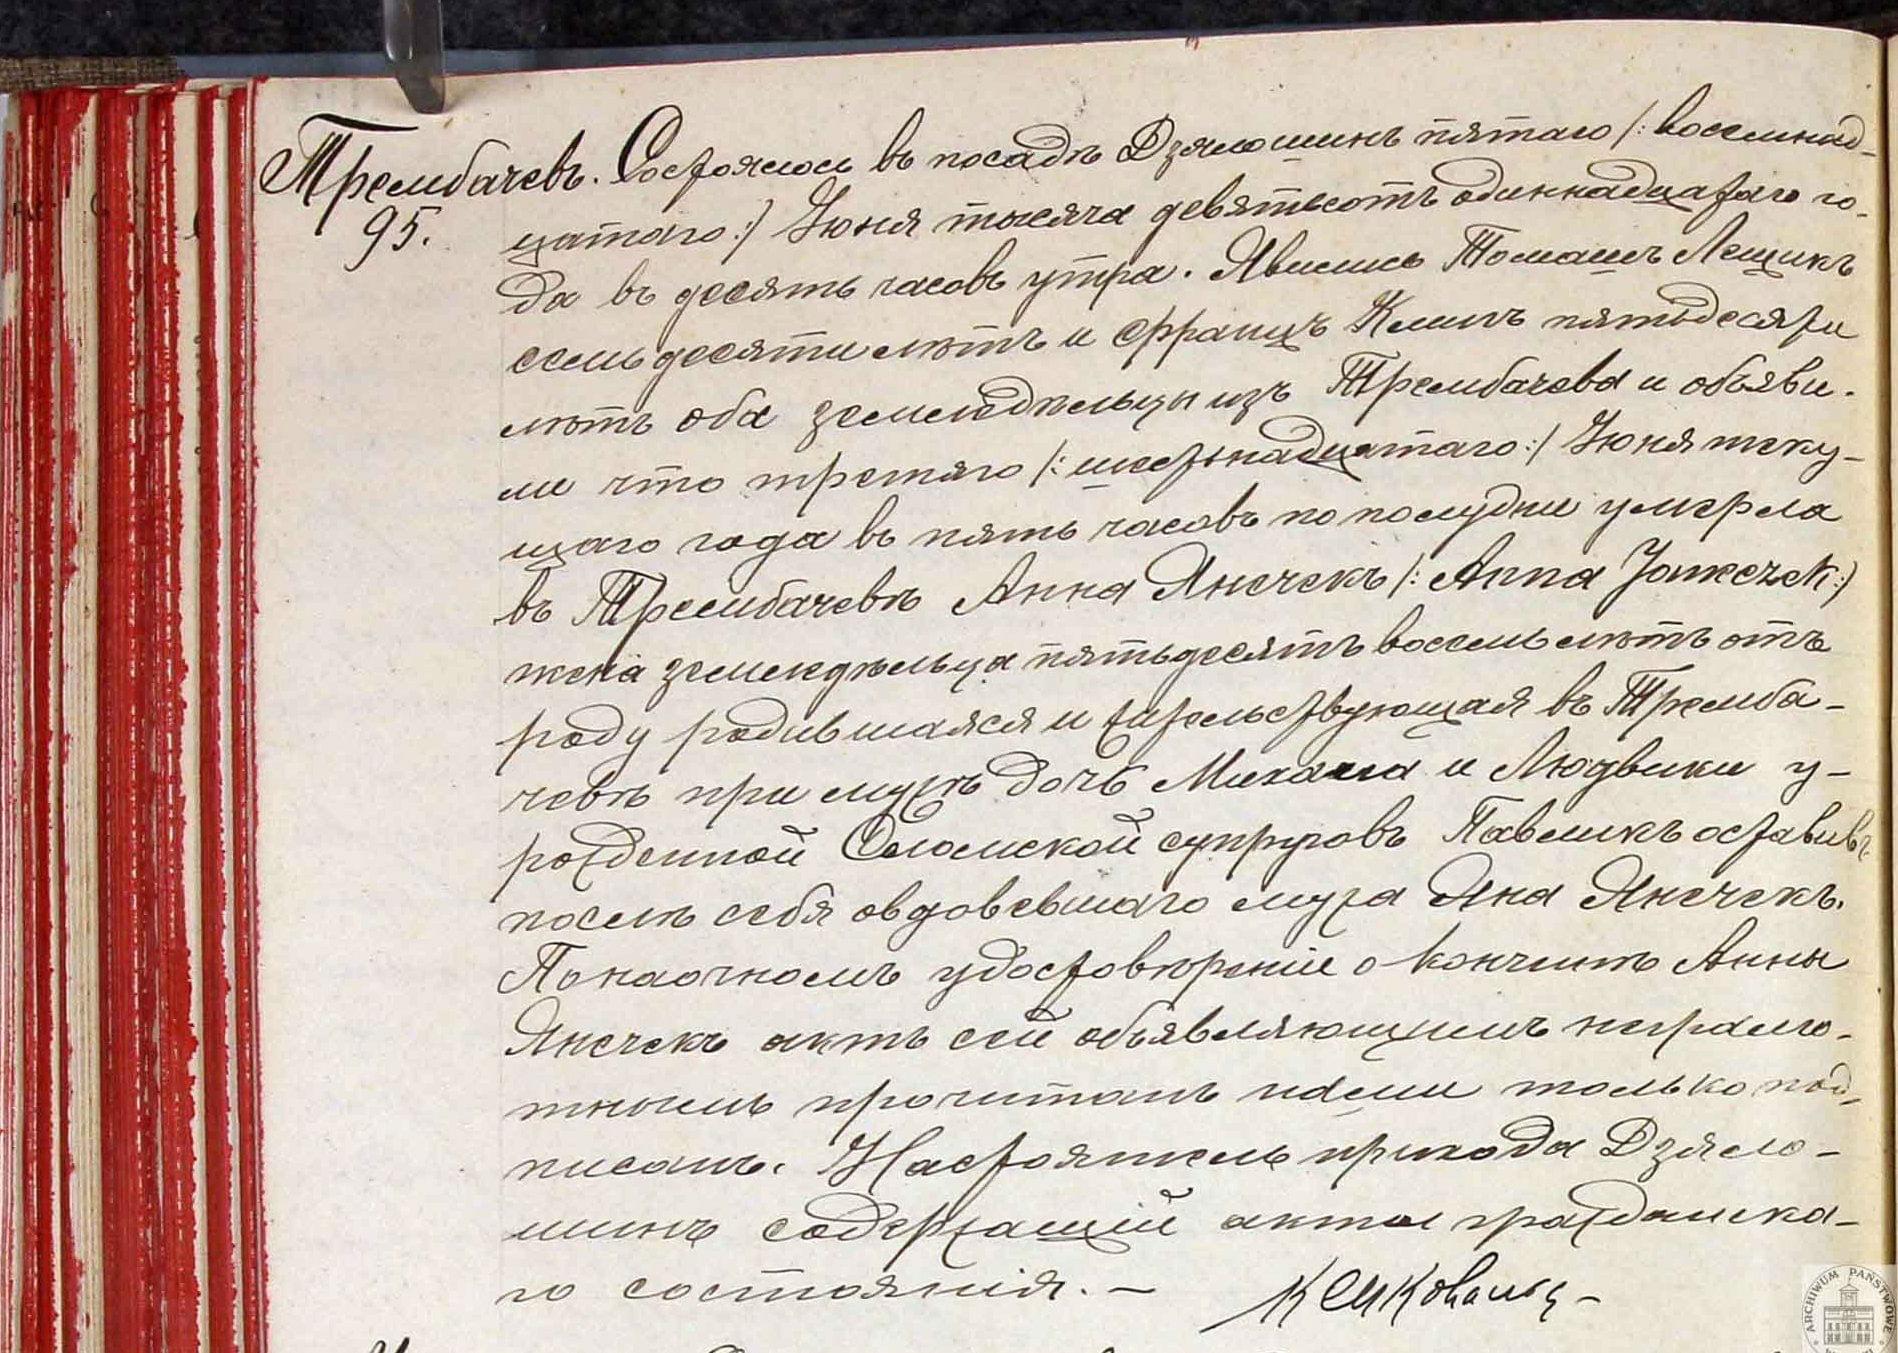 Трембачевъ. Состоялось въ посадѣ Дзялошинъ пятаго /: восемнад-
95. цатаго :/ Іюня тысяча девятьсотъ одиннадцатаго го-
да въ десять часовъ утра. Явились Томашъ Лещикъ
семьдесяти лѣтъ и Францъ Климъ пятьдесяти
лѣтъ оба земледѣльцы изъ Трембачева и объяви-
ли что третяго /: шестнадцатаго :/ Іюня теку-
щаго года въ пять часовъ пополудни умерла
въ Трембачевѣ Анна Янечекъ /: Anna Janeczek :/
жена земледѣльца пятьдесятъ восемь лѣтъ отъ
роду родившаяся и жительствующая въ Тремба-
чевѣ при мужѣ дочь Михала и Людвики у-
рожденной супруговъ Павликъ оставивъ
послѣ себя овдовевшаго мужа Яна Янечекъ.
По наочномъ удостовѣреніи о кончинѣ Анны
Янечекъ актъ сей объявляющимъ неграмо-
тнымъ прочитанъ нами только под-
писанъ. Настоятель прихода Дзяло-
шинъ содержащій акты гражданска-
го состоянія. —
ARCHIWUM PAŃSTWOWE